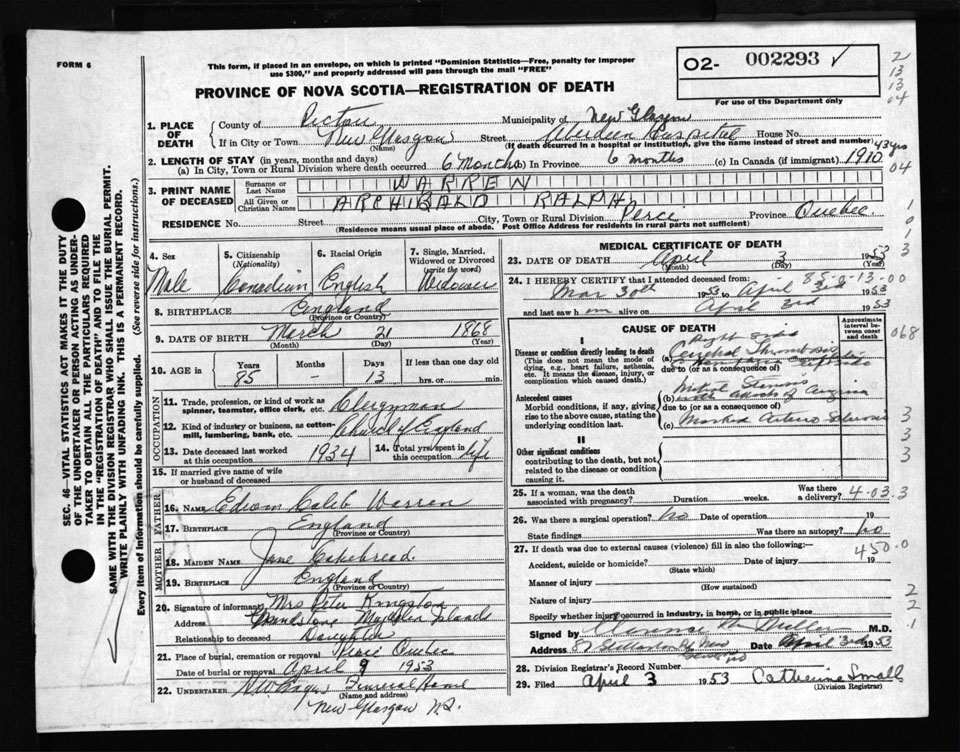 FORM 6
This form, if placed in an envelope, on which is printed "Dominion Statistics—Free, penalty for improper
use $300," and properly addressed will pass through the mail "FREE"
O2- 002293 ✓
For use of the Department only
PROVINCE OF NOVA SCOTIA—REGISTRATION OF DEATH
2
13
13
04
1. PLACE OF DEATH
County of Pictou Municipality of New Glasgow
If in City or Town New Glasgow (Name) Street Aberdeen Hospital House No.
(If death occurred in a hospital or institution, give the name instead of street and number)
43 yrs
2. LENGTH OF STAY (in years, months and days)
(a) In City, Town or Rural Division where death occurred 6 Months (b) In Province 6 months (c) In Canada (if immigrant) 1910
04
3. PRINT NAME OF DECEASED
Surname or Last Name WARREN
All Given or Christian Names ARCHIBALD RALPH
RESIDENCE No. Street City, Town or Rural Division Perce Province Quebec
(Residence means usual place of abode. Post Office Address for residents in rural parts not sufficient)
1
0
1
3
SEC. 46—VITAL STATISTICS ACT MAKES IT THE DUTY
OF THE UNDERTAKER OR PERSON ACTING AS UNDER-
TAKER TO OBTAIN ALL THE PARTICULARS REQUIRED
IN THE "REGISTRATION OF DEATH" AND TO FILE THE
SAME WITH THE DIVISION REGISTRAR WHO SHALL ISSUE THE BURIAL PERMIT.
WRITE PLAINLY WITH UNFADING INK. THIS IS A PERMANENT RECORD.
Every item of Information should be carefully supplied. (See reverse side for instructions.)
4. Sex
Male
5. Citizenship
(Nationality)
Canadian
6. Racial Origin
English
7. Single, Married,
Widowed or Divorced
(write the word)
Widower
8. BIRTHPLACE England
(Province or Country)
9. DATE OF BIRTH March 21 1868
(Month) (Day) (Year)
10. AGE in
Years 85
Months –
Days 13
If less than one day old
hrs. or min.
OCCUPATION
11. Trade, profession, or kind of work as
spinner, teamster, office clerk, etc. Clergyman
12. Kind of industry or business, as cotton-
mill, lumbering, bank, etc. Church of England
13. Date deceased last worked
at this occupation 1934
14. Total yrs spent in
this occupation life
15. If married give name of wife
or husband of deceased
FATHER
16. NAME Edwin Caleb Warren
17. BIRTHPLACE England
(Province or Country)
MOTHER
18. MAIDEN NAME Jane Cakebread
19. BIRTHPLACE England
(Province or Country)
20. Signature of informant Mrs Peter Kingston
Address Grindstone Magdalen Islands
Relationship to deceased Daughter
21. Place of burial, cremation or removal Perce Quebec
Date of burial or removal April 9 1953
22. UNDERTAKER Funeral Home
(Name and address)
New Glasgow N.S.
MEDICAL CERTIFICATE OF DEATH
23. DATE OF DEATH April 3 1953
(Month) (Day) (Year)
85-0-13-00
24. I HEREBY CERTIFY that I attended deceased from:
Mar 30th 1953 to April 3rd 1953
and last saw him alive on April 3rd 1953
CAUSE OF DEATH
Approximate
interval be-
tween onset
and death
068
I
Disease or condition directly leading to death
(This does not mean the mode of
dying, e.g., heart failure, asthenia,
etc. It means the disease, injury, or
complication which caused death.)
Right
(a) Cerebral Thrombosis
due to (or as a consequence of)
Antecedent causes
Morbid conditions, if any, giving
rise to the above cause, stating the
underlying condition last.
Mitral Stenosis
(b) with attacks of Angina
due to (or as a consequence of)
(c) Marked Arterio Sclerosis
3
3
3
II
Other significant conditions
contributing to the death, but not
related to the disease or condition
causing it.
25. If a woman, was the death
associated with pregnancy? Duration weeks. Was there
a delivery?
4-03.3
26. Was there a surgical operation? No Date of operation 19
State findings Was there an autopsy? No
27. If death was due to external causes (violence) fill in also the following:—
450.0
Accident, suicide or homicide? (State which) Date of injury 19
Manner of injury (How sustained)
Nature of injury
Specify whether injury occurred in industry, in home, or in public place
2
2
1
Signed by Clarence Miller M.D.
Address Date April 3rd 1953
28. Division Registrar's Record Number
29. Filed April 3 1953 Catherine Small
(Division Registrar)